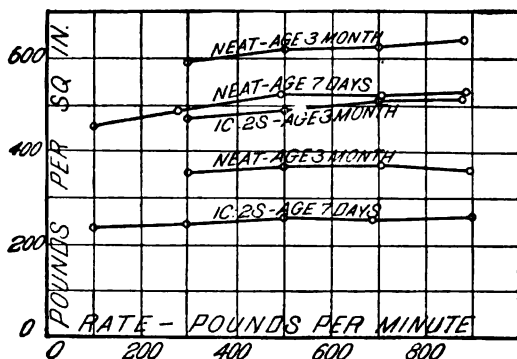 POUNDS PER SQ IN.
600
400
200
0
NEAT-AGE 3 MONTH
NEAT-AGE 7 DAYS
1C-2S-AGE 3 MONTH
NEAT-AGE 3 MONTH
1C-2S-AGE 7 DAYS
RATE - POUNDS PER MINUTE
0 200 400 600 800